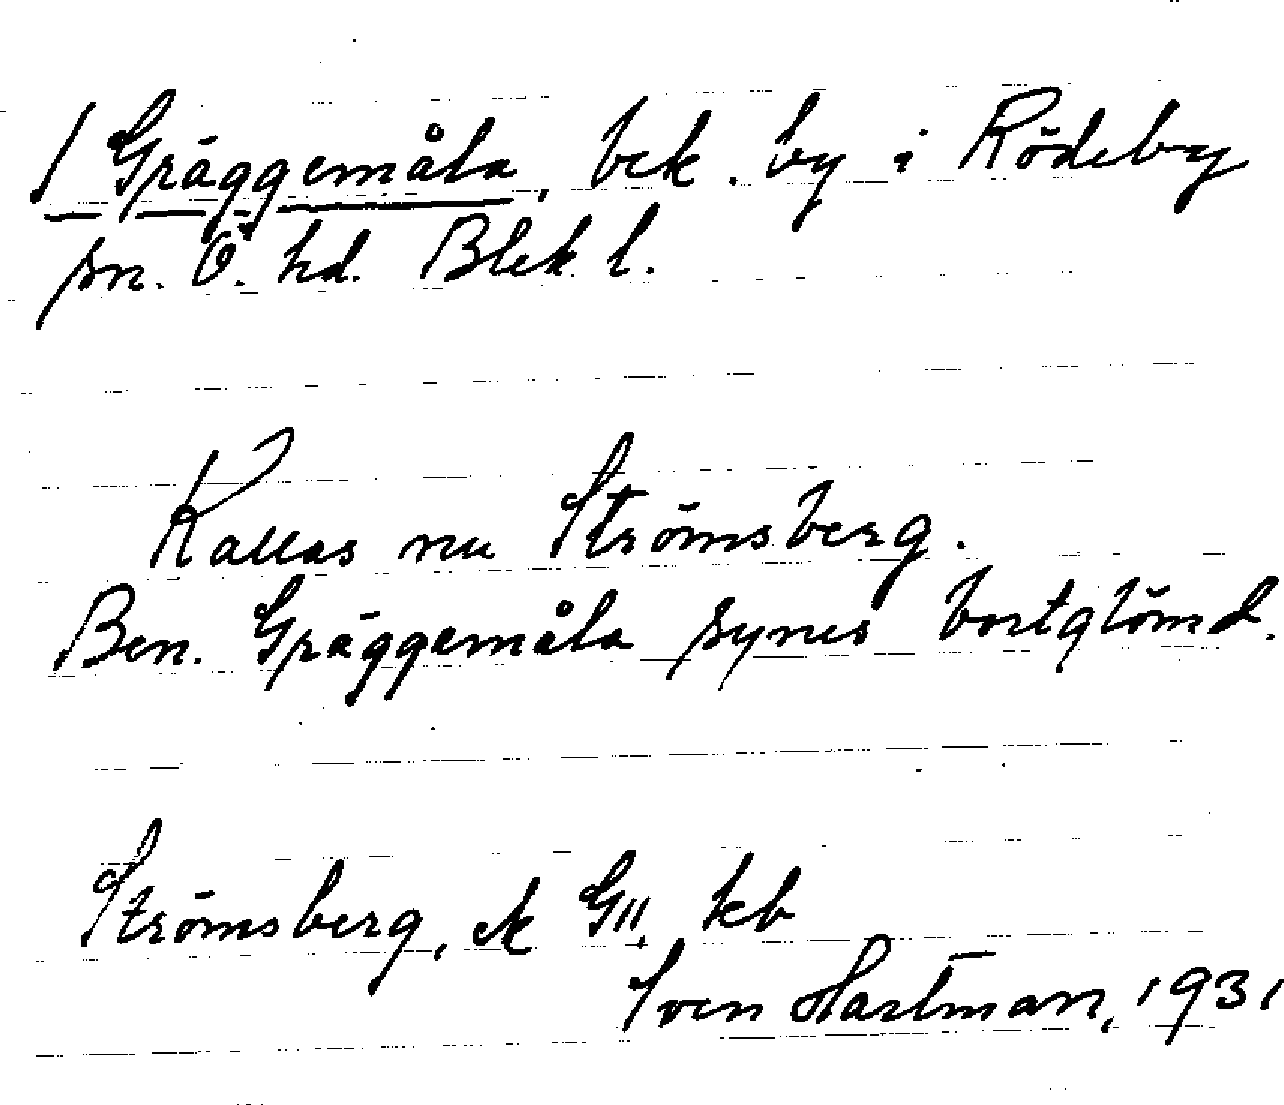 / Gräggemåla, bek. by i Rödeby
sn. Ö. hd. Blek. l.
Kallas nu Strömsberg.
Ben. Gräggemåla synes bortglömd.
Strömsberg, ek GII, kb
Sven Hartman, 1931